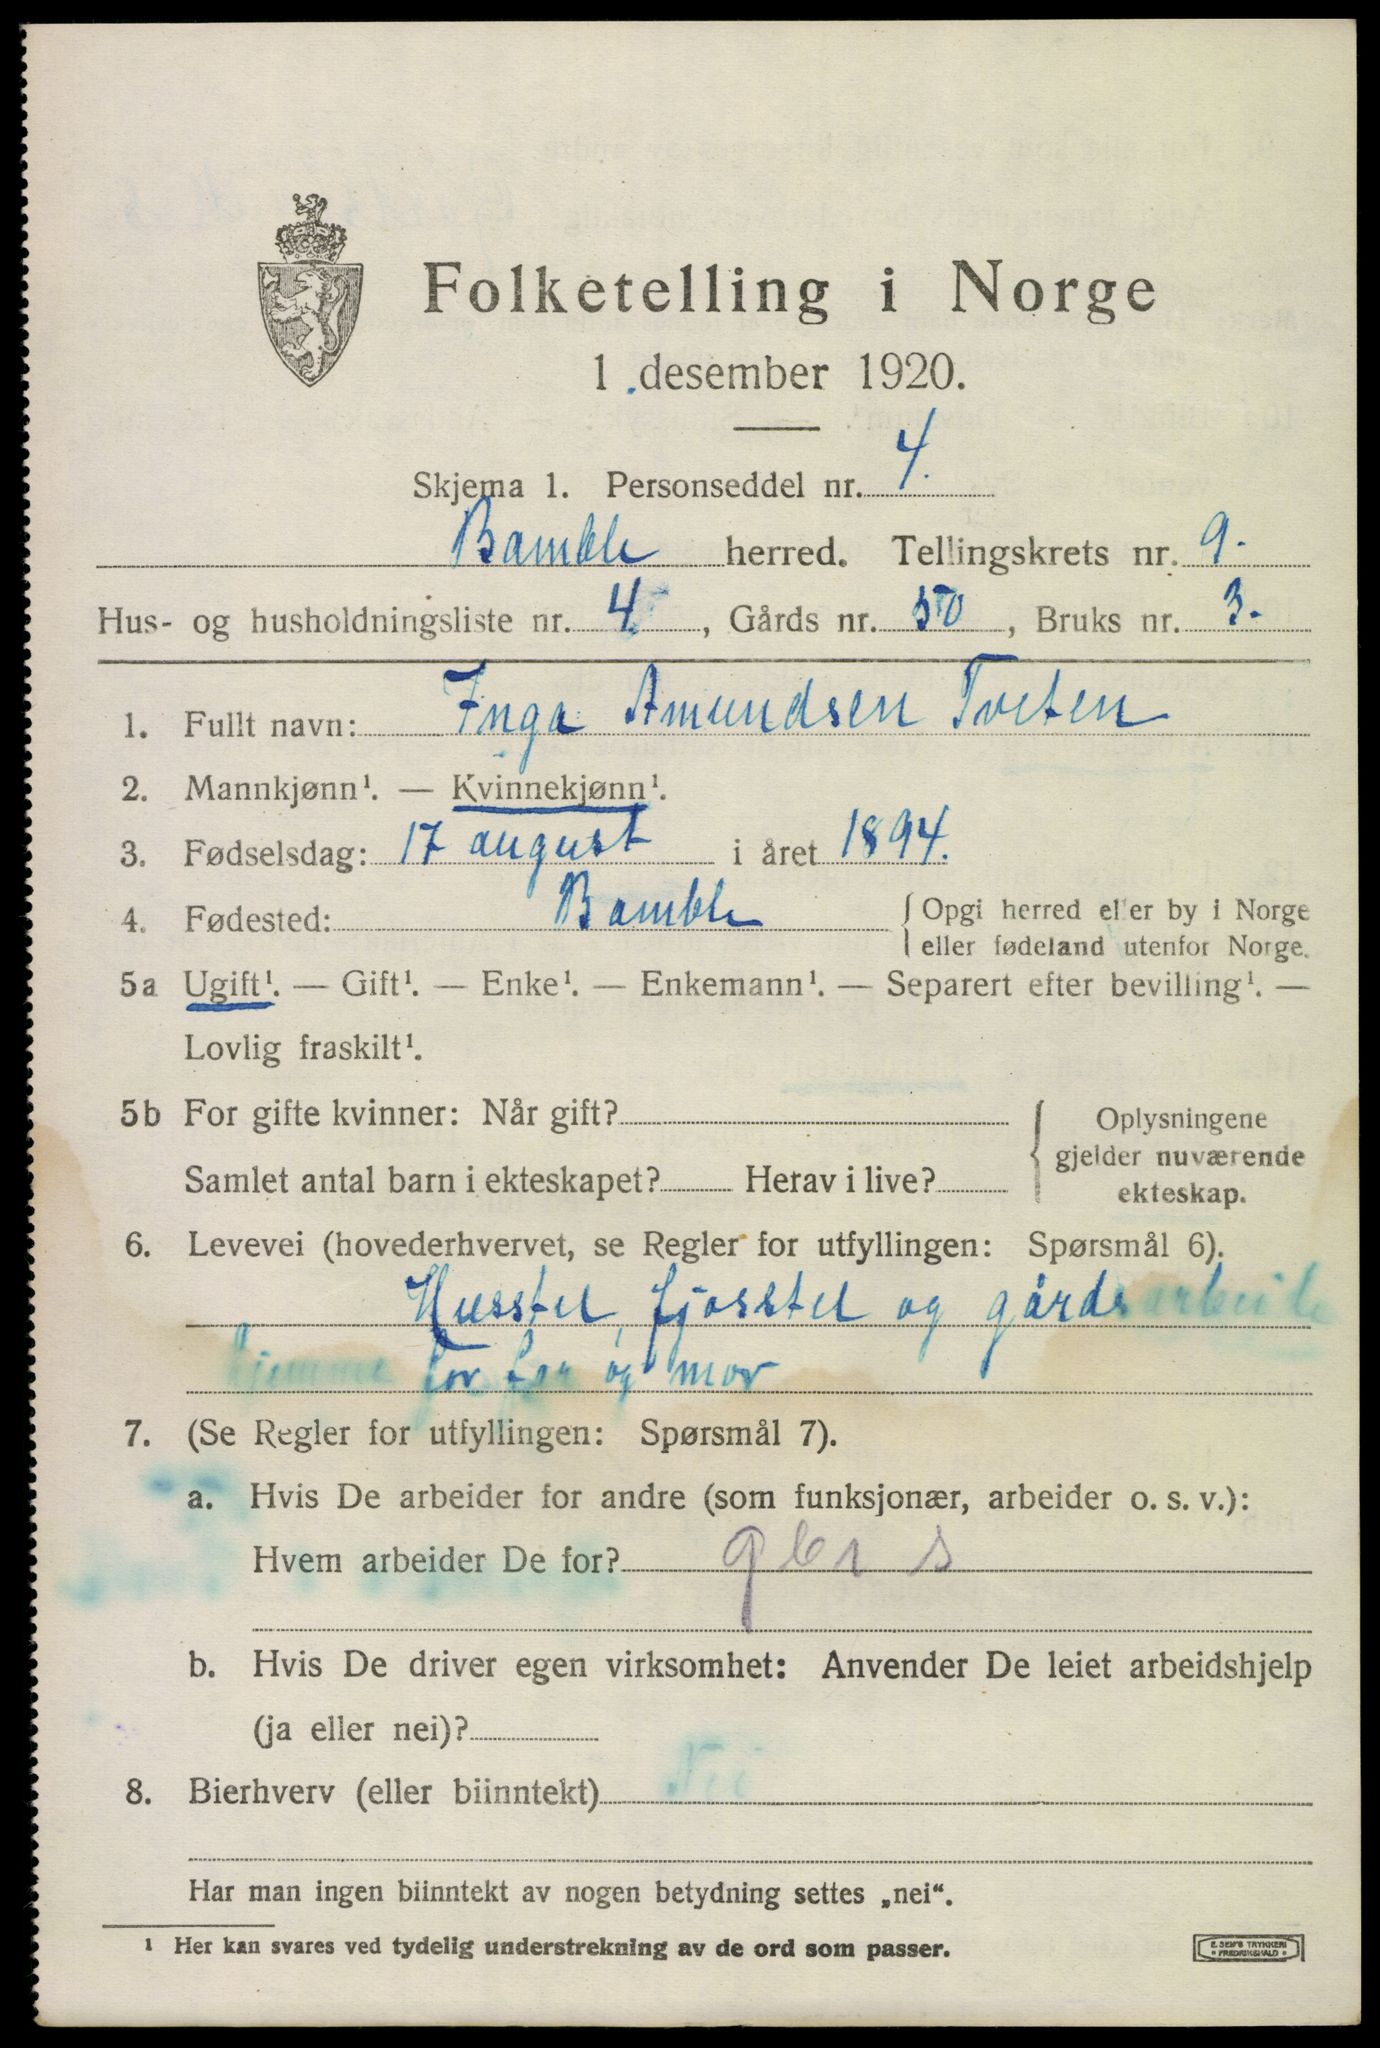 Folketelling i Norge
1. desember 1920.
Skjema 1. Personseddel nr. 4.
Bamble herred. Tellingskrets nr. 9.
Hus- og husholdningsliste nr. 4, Gårds nr. 50, Bruks nr. 3.
1. Fullt navn: Inga Amundsen Tveten
2. Mannkjønn¹. — Kvinnekjønn¹.
3. Fødselsdag: 17 august i året 1894.
4. Fødested: Bamble { Opgi herred eller by i Norge
eller fødeland utenfor Norge.
5a Ugift¹. — Gift¹. — Enke¹. — Enkemann¹. — Separert efter bevilling¹. —
Lovlig fraskilt¹.
5b For gifte kvinner: Når gift? { Oplysningene
gjelder nuværende
Samlet antal barn i ekteskapet? Herav i live?
ekteskap.
6. Levevei (hovederhvervet, se Regler for utfyllingen: Spørsmål 6).
Husstel, fjosstel og gårdsarbeide
hjemme for far og mor
7. (Se Regler for utfyllingen: Spørsmål 7).
a. Hvis De arbeider for andre (som funksjonær, arbeider o. s. v.):
Hvem arbeider De for?
b. Hvis De driver egen virksomhet: Anvender De leiet arbeidshjelp
(ja eller nei)?
8. Bierhverv (eller biinntekt) Nei
Har man ingen biinntekt av nogen betydning settes „nei“.
¹ Her kan svares ved tydelig understrekning av de ord som passer.
E. SEM'S TRYKKERI
FREDRIKSHALD